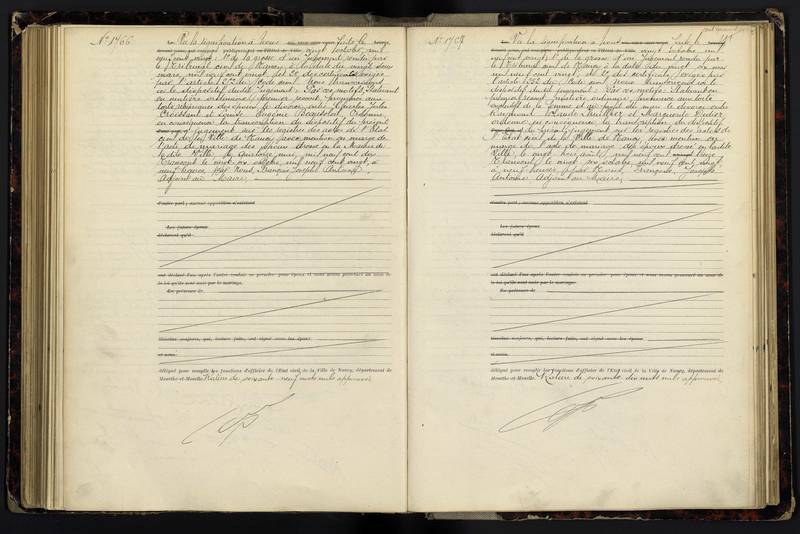 N° 1766
Vu la signification à nous faite le
vingt octobre, mil
neuf cent vingt; 1° de la grosse d'un jugement rendu par
le Tribunal civil de Nancy, à la date du vingt deux
mars, mil neuf cent vingt, et 2° des certificats exigés
par l'article 252 du Code civil. Nous transcrivons
ici le dispositif dudit jugement: Par ces motifs, Statuant
en matière ordinaire, premier ressort, prononce aux
torts réciproques des époux le divorce entre Charles Jules
et Louise Eugénie Ordonne,
en conséquence la transcription du dispositif du présent
jugement sur les registres des actes de l'Etat
civil de la Ville de Nancy avec mention en marge de
l'acte de mariage des époux dressé en la Mairie de
ladite Ville, le quatorze mai, mil neuf cent dix
Transcrit le vingt six octobre, mil neuf cent vingt, à
neuf heures, par Nous, François Joseph Antoine,
Adjoint au Maire.
d'autre part; aucune opposition n'existant
Les futurs époux
déclarent qu'il
ont déclaré l'un après l'autre vouloir se prendre pour époux et nous avons prononcé au nom de
la Loi qu'ils sont unis par le mariage.
En présence de
témoins majeurs, qui, lecture faite, ont signé avec les époux
et nous
délégué pour remplir les fonctions d'officier de l'Etat civil de la Ville de Nancy, département de
Meurthe-et-Moselle. Rature de soixante-neuf mots nuls approuvée
N° 1767
Vu la signification à nous faite le
vingt octobre, mil
neuf cent vingt, 1° de la grosse d'un jugement rendu par
le Tribunal civil de Nancy, à la date du vingt
mil neuf cent vingt, et 2° des certificats exigés par
l'article 252 du Code civil. Nous transcrivons ici le
dispositif dudit jugement: Par ces motifs: Statuant en
premier ressort, matière ordinaire, prononce aux torts
respectifs de la femme et du mari le divorce entre
Raymond et Marguerite
ordonne en conséquence la transcription du dispositif
du présent jugement sur les registres des actes de
l'Etat civil de la Ville de Nancy avec mention en
marge de l'acte de mariage des époux dressé en ladite
Ville, le vingt mil neuf cent treize
Transcrit le vingt six octobre, mil neuf cent vingt,
à neuf heures, par Nous, François, Joseph
Antoine, Adjoint au Maire,
d'autre part; aucune opposition n'existant
Les futurs époux
déclarent qu'il
ont déclaré l'un après l'autre vouloir se prendre pour époux et nous avons prononcé au nom de
la Loi qu'ils sont unis par le mariage.
En présence de
témoins majeurs, qui, lecture faite, ont signé avec les époux
et nous
délégué pour remplir les fonctions d'officier de l'Etat civil de la Ville de Nancy, département de
Meurthe-et-Moselle. Rature de soixante-dix mots nuls approuvée